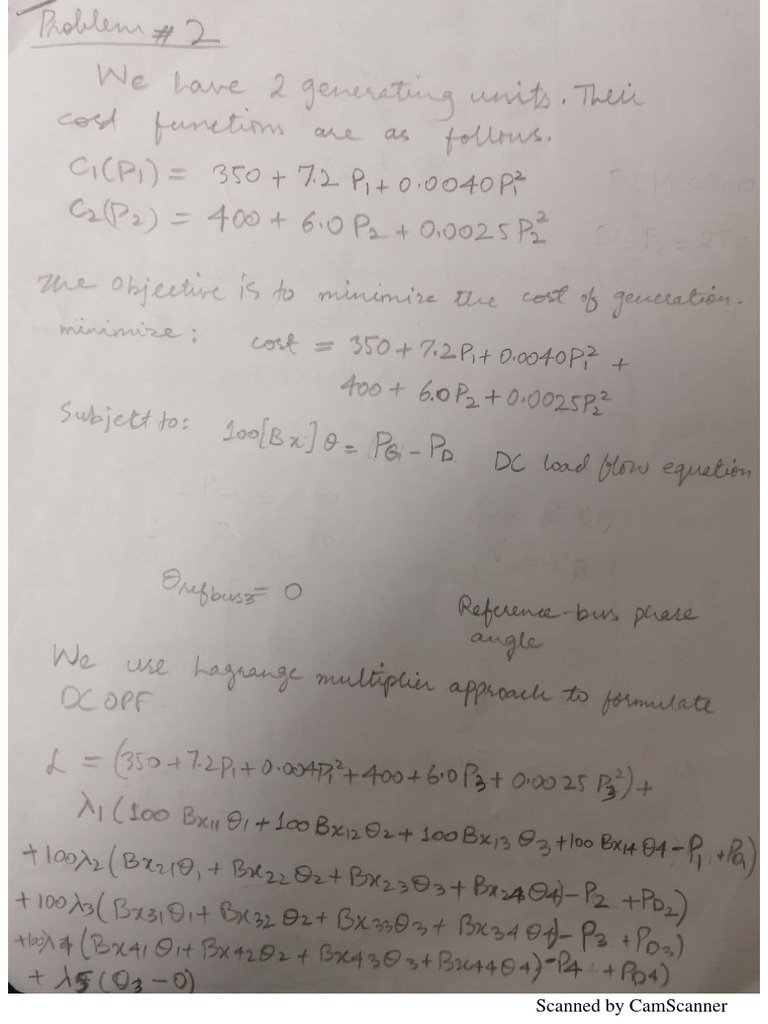 Problem # 2
We have 2 generating units. Their
cost functions are as follows.
C1(P1) = 350 + 7.2 P1 + 0.0040 P1²
C2(P2) = 400 + 6.0 P2 + 0.0025 P2²
The objective is to minimize the cost of generation.
minimize: cost = 350 + 7.2 P1 + 0.0040 P1² +
400 + 6.0 P2 + 0.0025 P2²
Subject to: 100[Bx] θ = PGi - PD. DC load flow equation
θref bus3 = 0
Reference-bus phase
angle
We use Lagrange multiplier approach to formulate
DC OPF
L = (350 + 7.2P1 + 0.004P1² + 400 + 6.0 P3 + 0.0025 P3²) +
λ1 (100 Bx11 θ1 + 100 Bx12 θ2 + 100 Bx13 θ3 + 100 Bx14 θ4 - P1 + PD1)
+ 100 λ2 (Bx21 θ1 + Bx22 θ2 + Bx23 θ3 + Bx24 θ4) - P2 + PD2)
+ 100 λ3 (Bx31 θ1 + Bx32 θ2 + Bx33 θ3 + Bx34 θ4) - P3 + PD3)
+ 100 λ4 (Bx41 θ1 + Bx42 θ2 + Bx43 θ3 + Bx44 θ4) - P4 + PD4)
+ λ5 (θ3 - 0)
Scanned by CamScanner